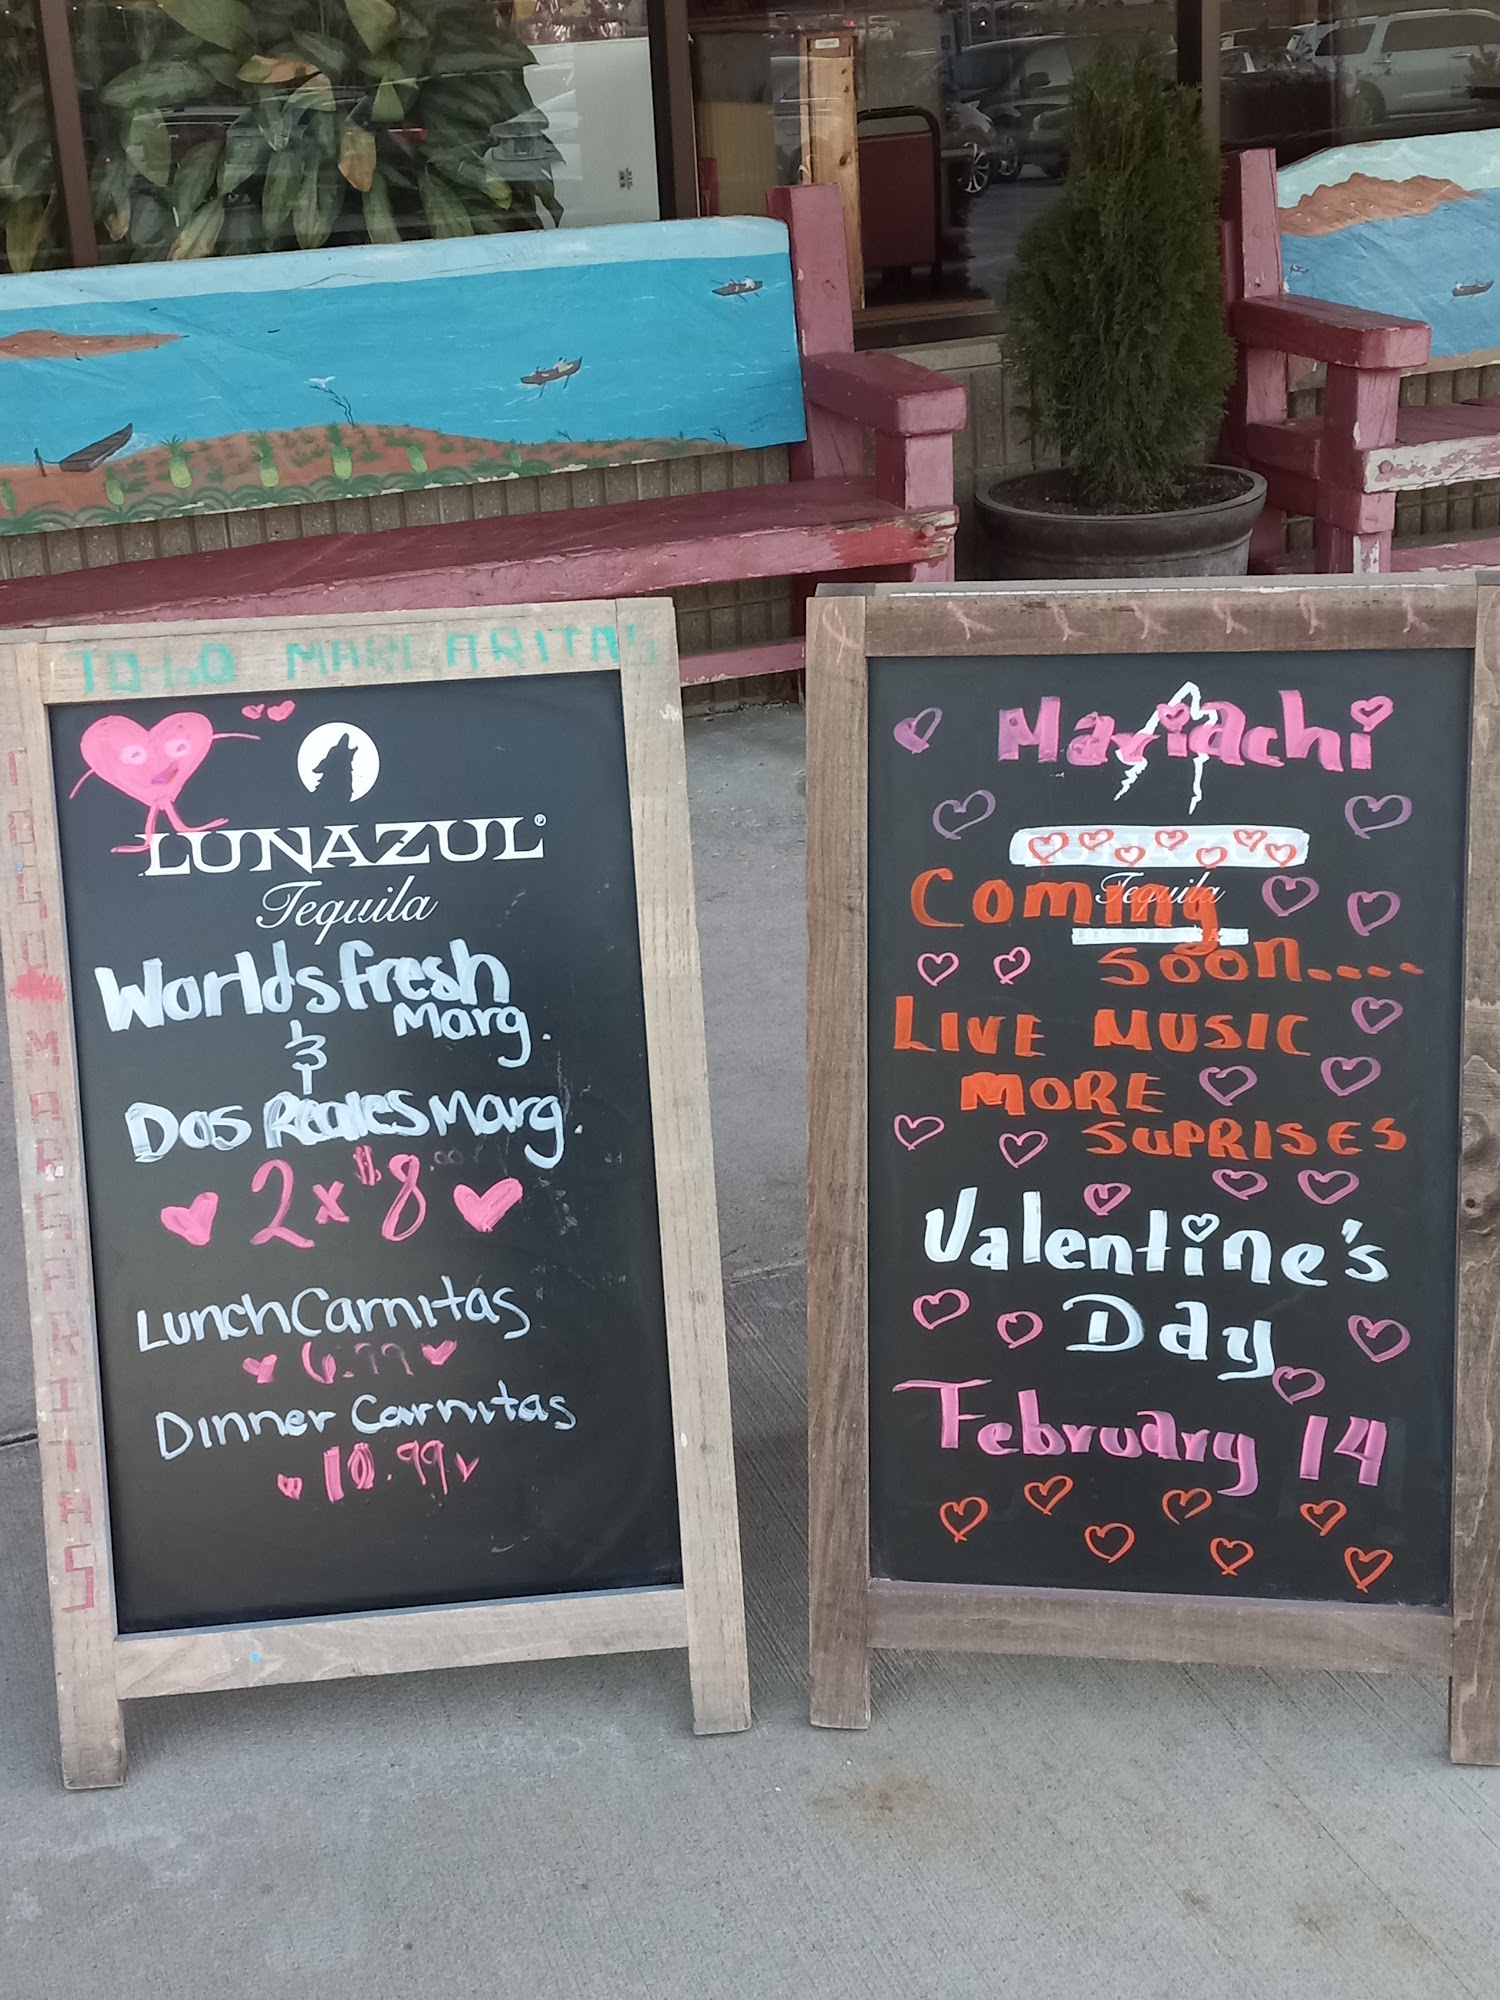 TO-GO MARGARITAS
TOGO MARGARITAS
LUNAZUL
Tequila
Worlds fresh
Marg.
&
Dos Reales Marg.
2 x $8.00
Lunch Carnitas
6.99
Dinner Carnitas
10.99
Mariachi
Tequila
Coming
soon....
LIVE MUSIC
MORE
SUPRISES
Valentine's
Day
February 14